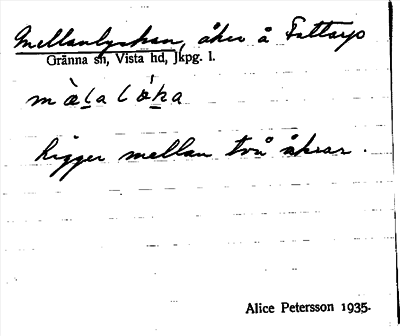 Mellanlyckan, åker å Tuttarp
Gränna sn, Vista hd, Jkpg. l.
Ligger mellan två åkrar.
Alice Petersson 1935.